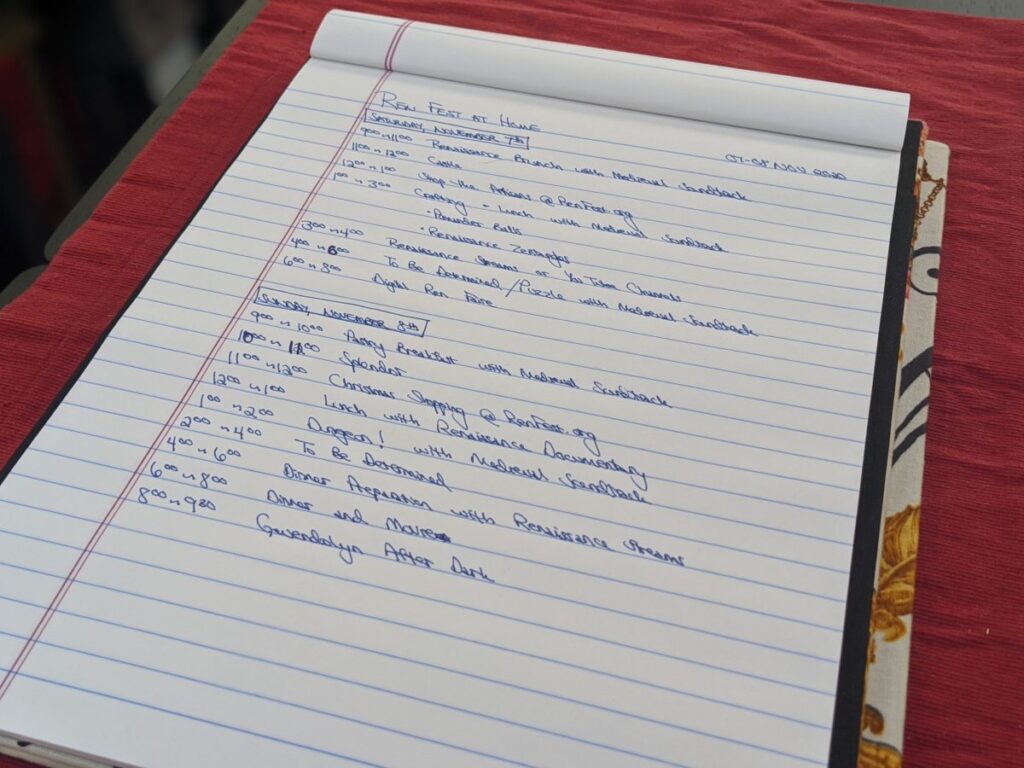 Ren Fest at Home
07-08 Nov 2020
Saturday, November 7th
9:00 – 11:00 Renaissance Brunch with Medieval Soundtrack
11:00 – 12:00 Castle
12:00 – 1:00 Shop the Artisans @ RenFest.org
1:00 – 3:00 Crafting + Lunch with Medieval Soundtrack
• Pomander Balls
• Renaissance Zentangles
3:00 – 4:00 Renaissance Streams or YouTube Channels
4:00 – 6:00 To Be Determined / Puzzle with Medieval Soundtrack
6:00 – 8:00 Digital Ren Faire
Sunday, November 8th
9:00 – 10:00 Pastry Breakfast with Medieval Soundtrack
10:00 – 11:00 Splendor
11:00 – 12:00 Christmas Shopping @ RenFest.org
12:00 – 1:00 Lunch with Renaissance Documentary
1:00 – 2:00 Dungeon! with Medieval Soundtrack
2:00 – 4:00 To Be Determined
4:00 – 6:00 Dinner Preparation with Renaissance Streams
6:00 – 8:00 Dinner and Movie
8:00 – 9:30 Gwendolyn After Dark